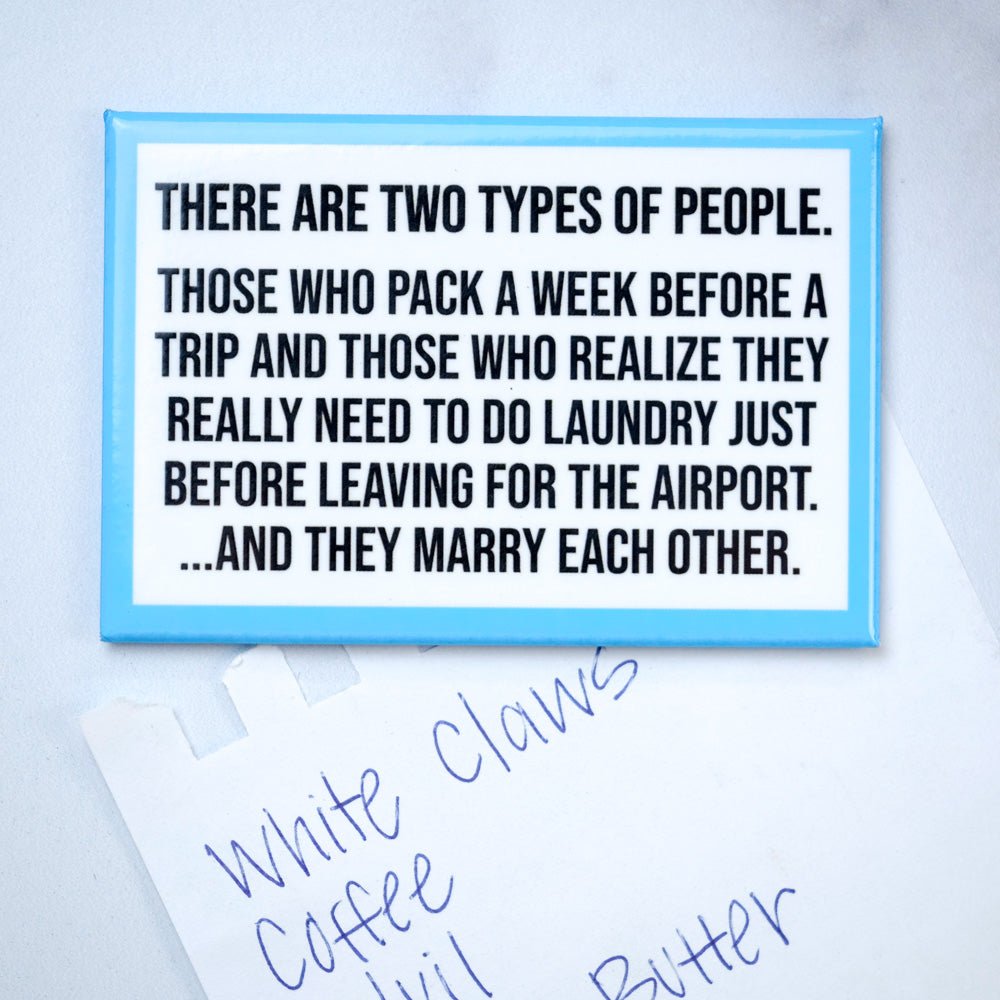 THERE ARE TWO TYPES OF PEOPLE.
THOSE WHO PACK A WEEK BEFORE A
TRIP AND THOSE WHO REALIZE THEY
REALLY NEED TO DO LAUNDRY JUST
BEFORE LEAVING FOR THE AIRPORT.
...AND THEY MARRY EACH OTHER.
White Claws
Coffee
Butter